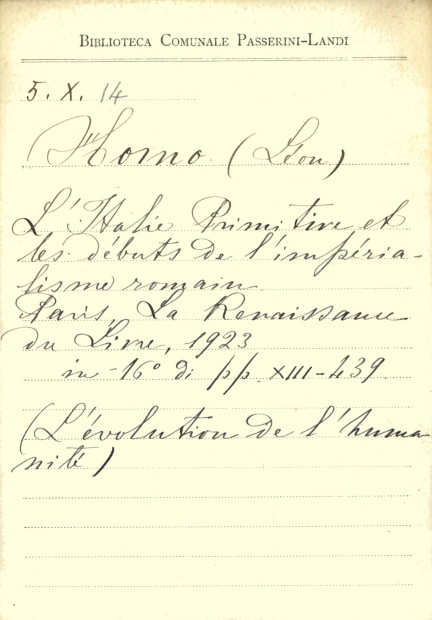 BIBLIOTECA COMUNALE PASSERINI-LANDI
5. X. 14
Homo (Léon)
L'Italie Primitive et
les débuts de l'impéria-
lisme romain
Paris, La Renaissance
du Livre, 1923
in-16° di pp. XIII-439
(L'évolution de l'huma
nité)